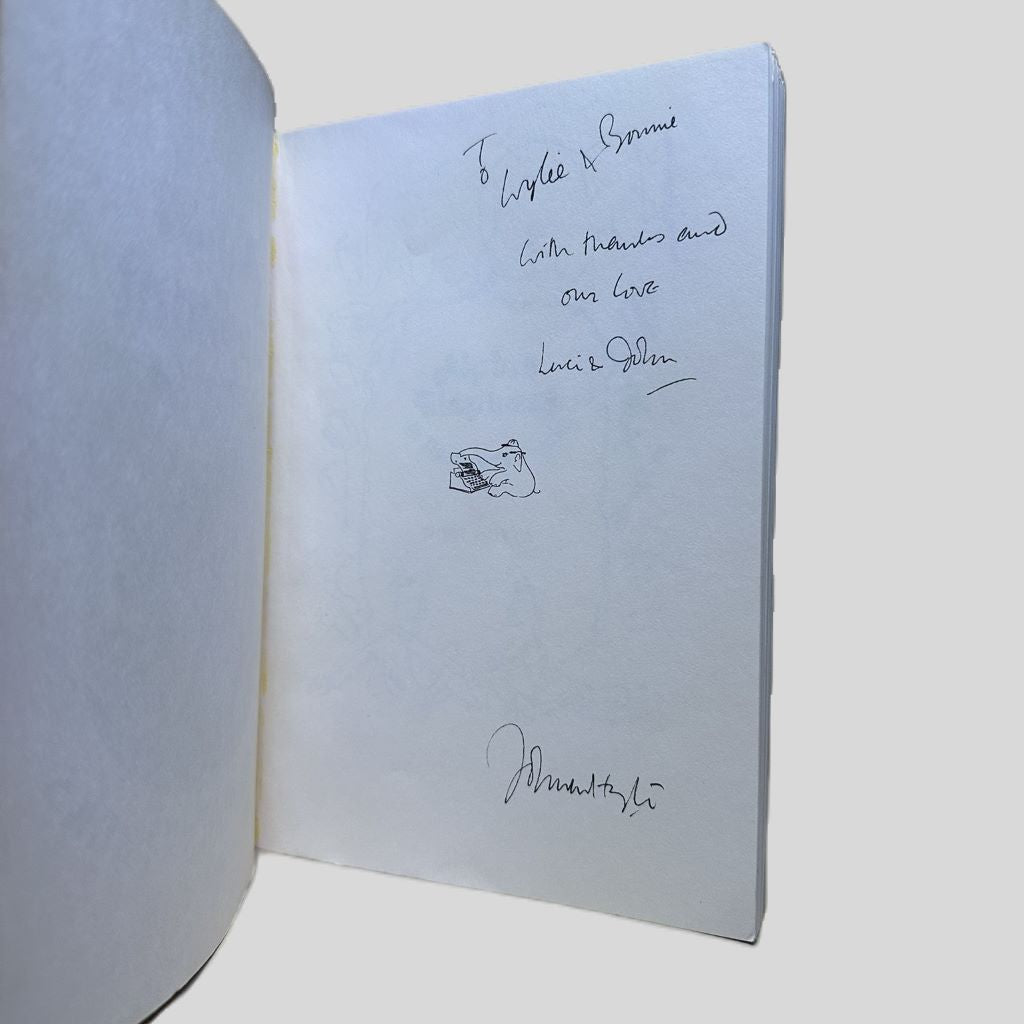 To
Wylie & Bonnie
with thanks and
our love
Luci & John